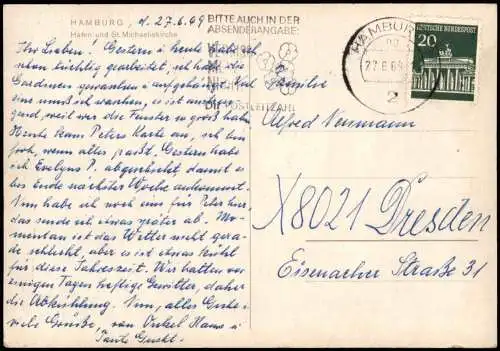 HAMBURG, d. 27.6.69
Hafen und St. Michaeliskirche
BITTE AUCH IN DER
ABSENDERANGABE:
DIE POSTLEITZAHL
HAMBURG
27.6.69
2
20
DEUTSCHE BUNDESPOST
Ihr Lieben! Gestern u. heute habe ich
schon tüchtig gearbeitet, habe die
Gardinen gewaschen u. aufgehängt.
weil wir die Fenster so groß haben.
Heute kam Peters Karte an, ich bin
froh, wenn alles paßt. Gestern habe
ich Evelyns P. abgeschickt, damit es
bis Ende nächster Woche ankommt.
Nun habe ich noch eins für Peter hier,
das sende ich etwas später ab. Mo-
mentan ist das Wetter nicht gera-
de schlecht, aber es ist etwas kühl
für diese Jahreszeit. Wir hatten vor
einigen Tagen heftige Gewitter, daher
die Abkühlung. Nun, alles Gute u.
viele Grüße, von Onkel Hans u.
Tante
Alfred Neumann
X8021 Dresden
Eisenacher Straße 31